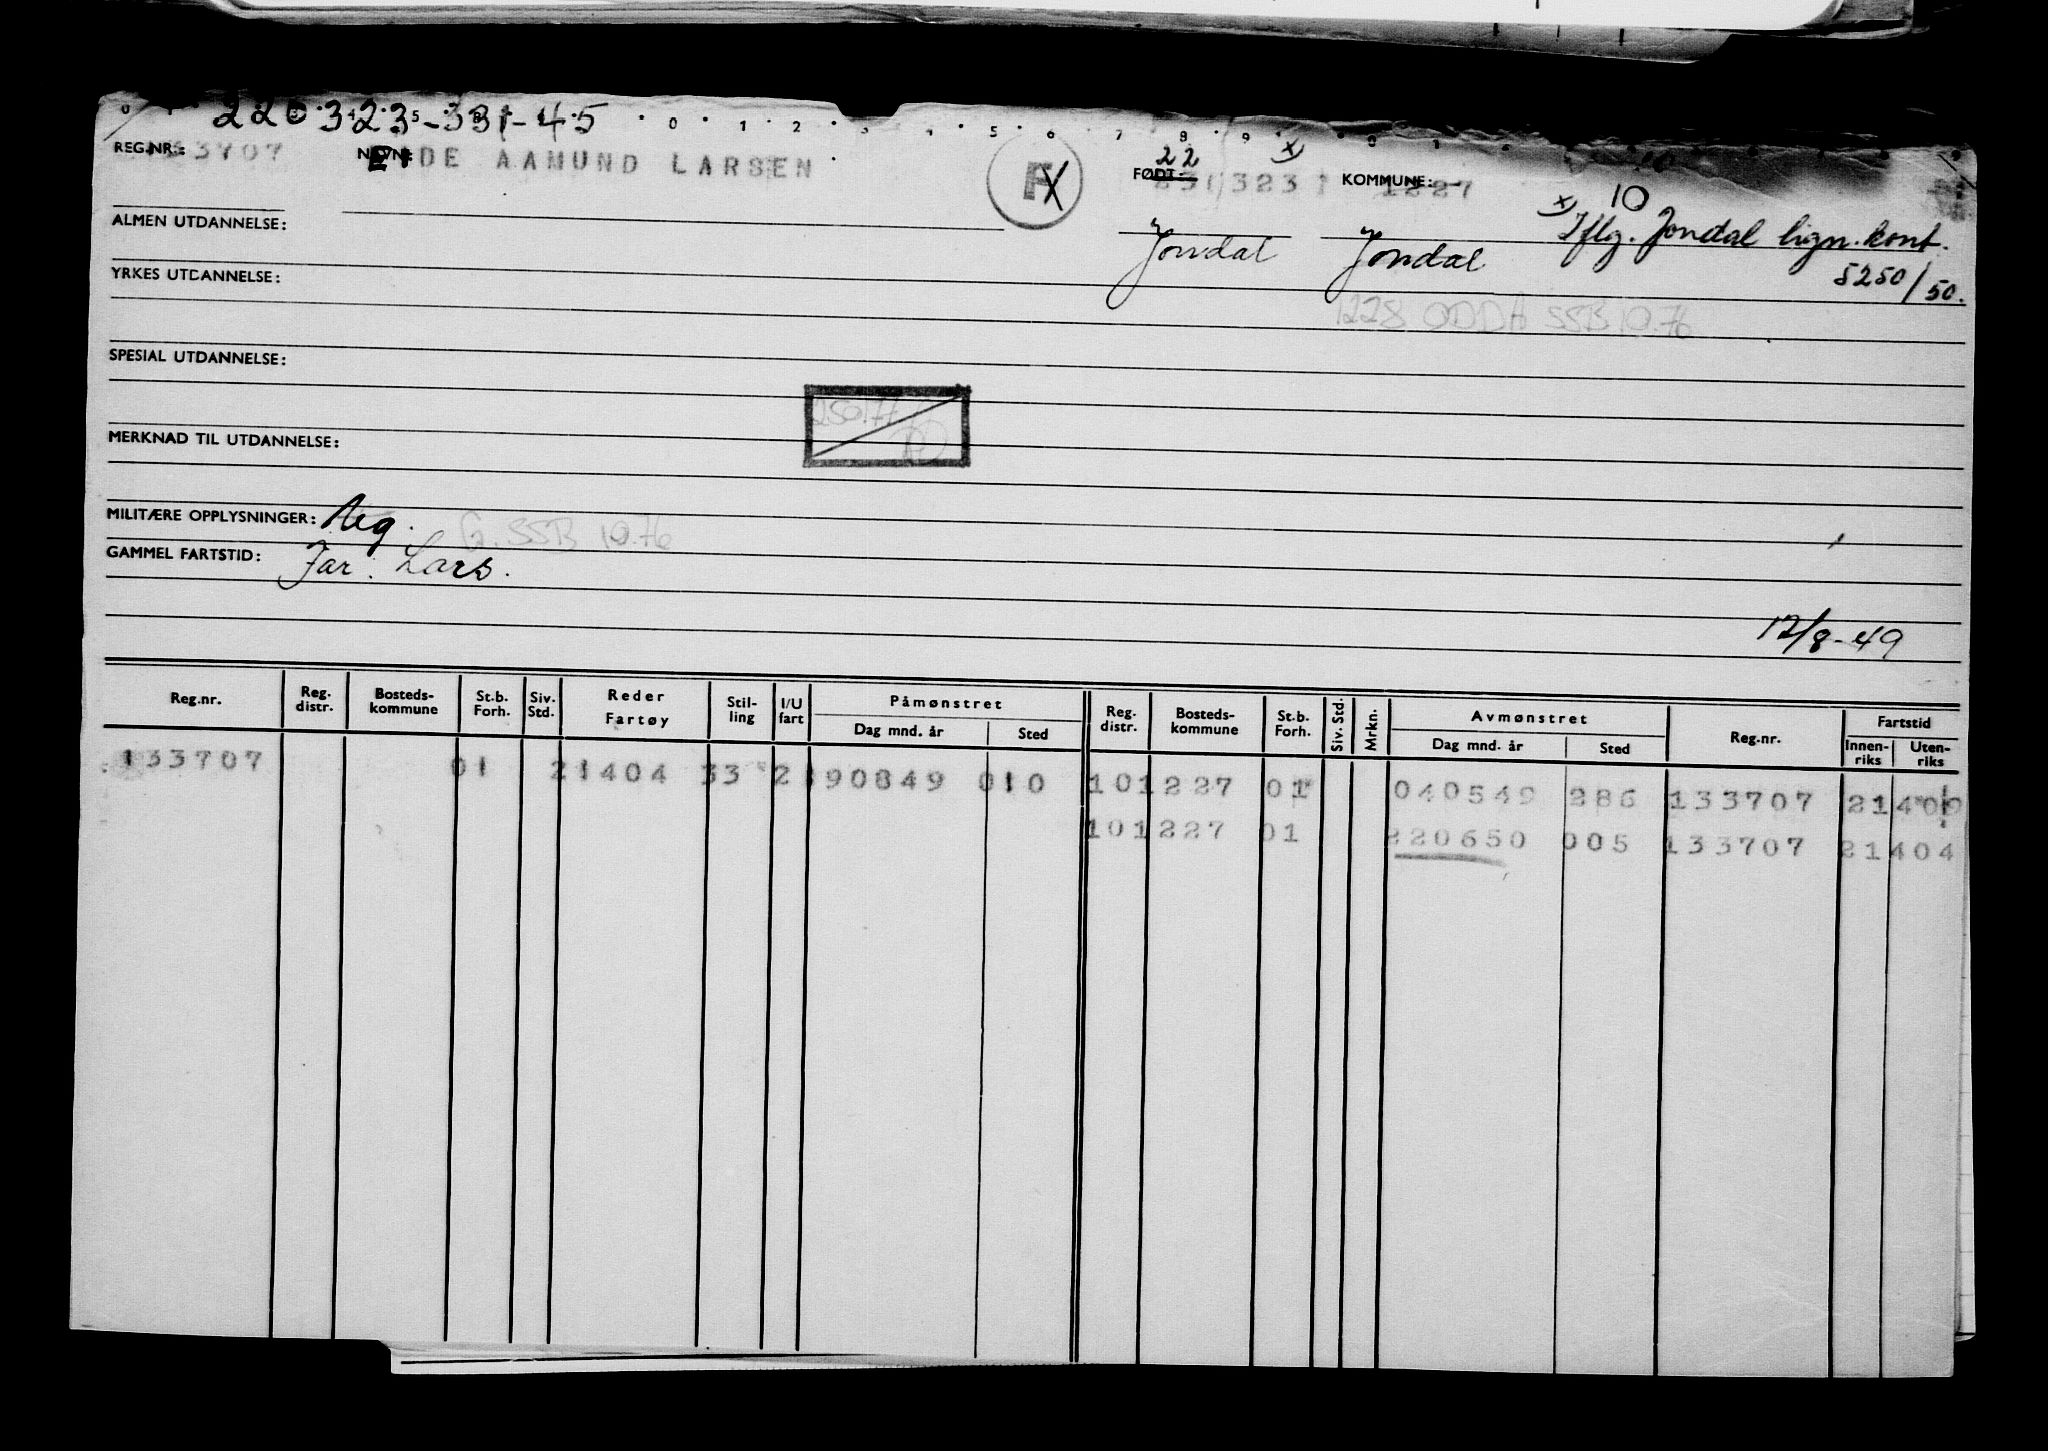 220323-331-45
REG.NR.: 133707 NAVN: EIDE AAMUND LARSEN F X FØDT: 22 x) KOMMUNE: 1227 10
ALMEN UTDANNELSE: Jondal Jondal x) Iflg. Jondal lign.kont.
5250/50.
YRKES UTDANNELSE:
1228 ODDA SSB 10.76
SPESIAL UTDANNELSE:
MERKNAD TIL UTDANNELSE:
MILITÆRE OPPLYSNINGER: Neg. G. SSB 10.76
GAMMEL FARTSTID: Far: Lars.
12/8-49
Reg.nr. Reg. distr. Bosteds-kommune St.b. Forh. Siv. Std. Reder Fartøy Stil-ling I/U fart Påmønstret Dag mnd. år Sted Reg. distr. Bosteds-kommune St.b. Forh. Siv. Std. Mrkn. Avmønstret Dag mnd. år Sted Reg.nr. Fartstid Innen-riks Uten-riks
133707 01 21404 33 2 90849 010 101227 01 040549 286 133707
101227 01 220650 005 133707 21404